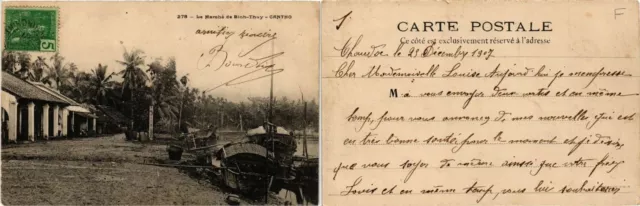 278 - Le Marché de Binh-Thuy - CANTHO
5
CARTE POSTALE
Ce côté est exclusivement réservé à l'adresse
F
le 25 Décembre 1907
Cher Mademoiselle Louise Aujourd'hui je
M à vous envoyer deux cartes et en même
temp, pour vous annoncer de mes nouvelles, qui est
en très bonne santée pour le moment et je désire,
que vous soyez de même ainsi que votre
Louis et en même temp, vous lui